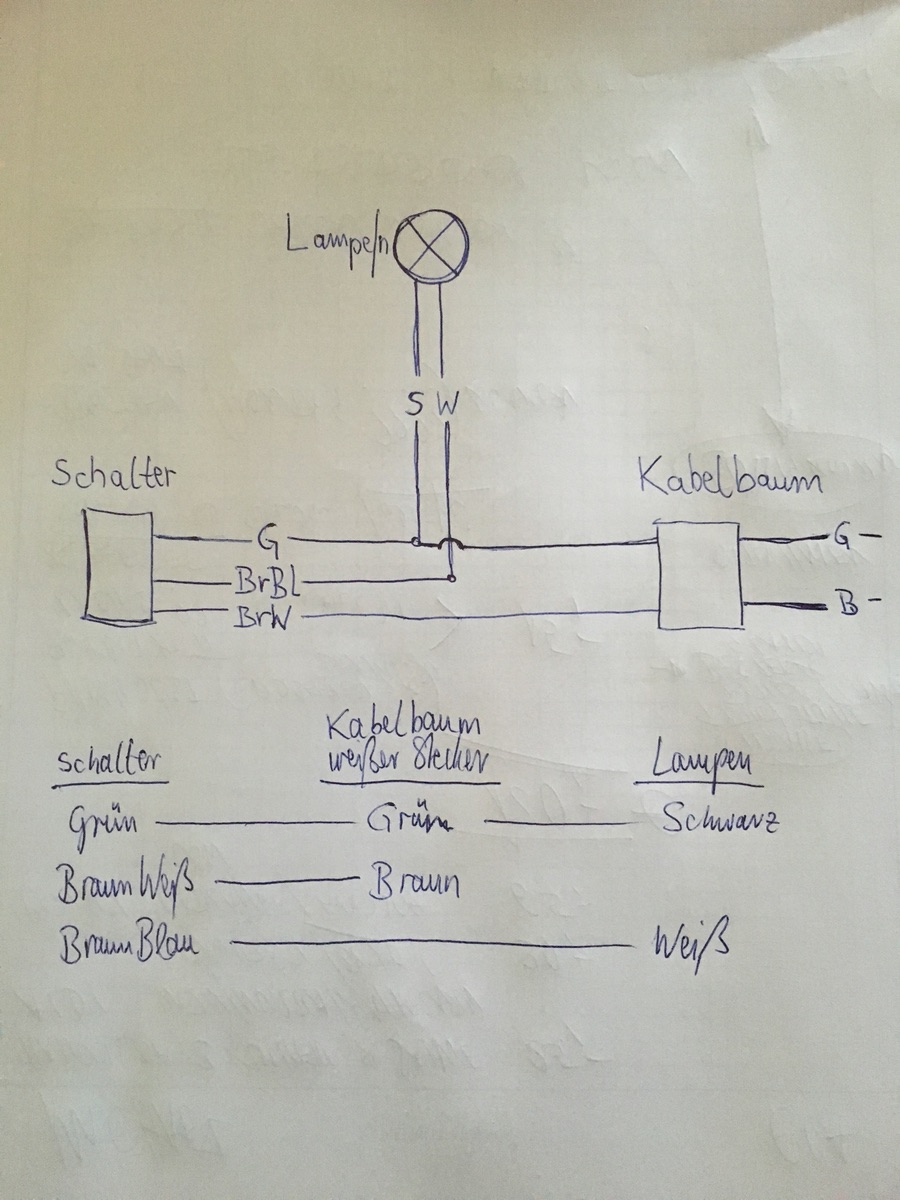 Lampe/n
S W
Schalter
Kabelbaum
G
G -
BrBl
BrW
B -
Kabelbaum
Schalter weißer Stecker Lampen
Grün Grün Schwarz
Braun Weiß Braun
Braun Blau Weiß